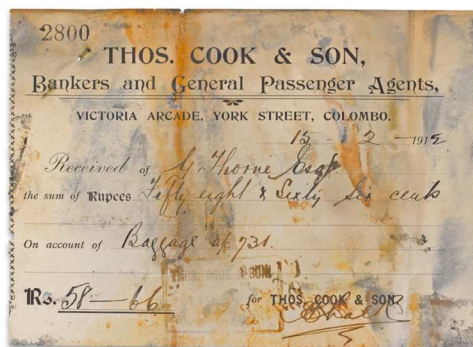 2800
THOS. COOK & SON,
Bankers and General Passenger Agents,
VICTORIA ARCADE, YORK STREET, COLOMBO.
15 - 2 - 1912
Received of G Thorne Esqr
the sum of Rupees Fifty eight & Sixty Six cents
On account of Baggage
Rs. 58 — 66
for THOS. COOK & SON